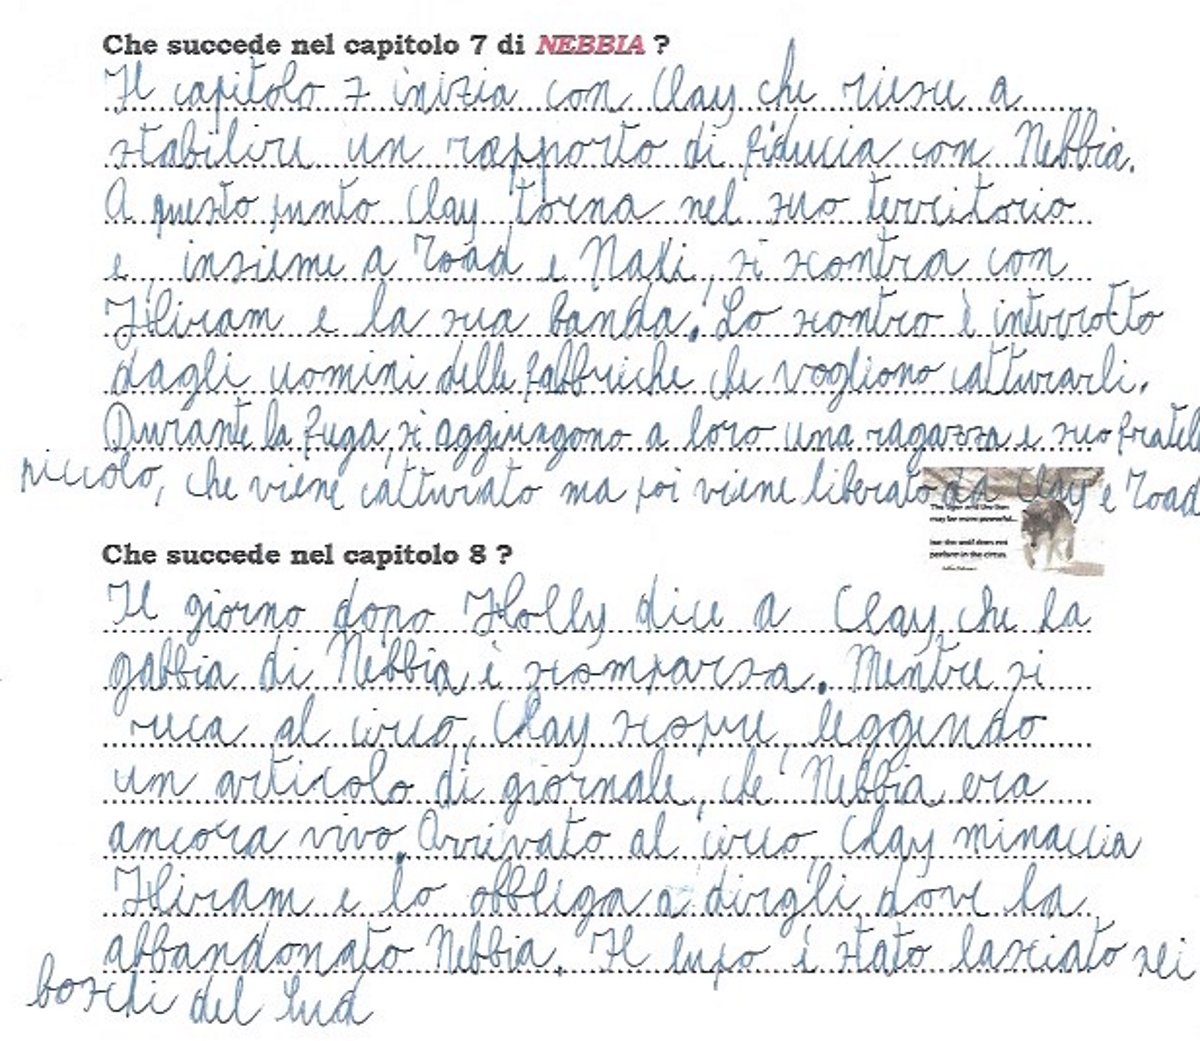 Che succede nel capitolo 7 di NEBBIA ?
Il capitolo 7 inizia con Clay che riesce a
stabilire un rapporto di fiducia con Nebbia.
A questo punto Clay torna nel suo territorio
e, insieme a Toad e Naxi, si scontra con
Hiram e la sua banda. Lo scontro è interrotto
dagli uomini delle fabbriche che vogliono catturarli.
Durante la fuga, si aggiungono a loro una ragazza e suo fratel
piccolo, che viene catturato ma poi viene liberato da Clay e Toad
The tiger and the lion
may be more powerful...
but the wolf does not
perform in the circus.
Che succede nel capitolo 8 ?
Il giorno dopo Holly dice a Clay che la
gabbia di Nebbia è scomparsa. Mentre si
reca al circo, Clay scopre, leggendo
un articolo di giornale, che Nebbia era
ancora vivo. Arrivato al circo, Clay minaccia
Hiram e lo obbliga a dirgli dove la
abbandonato Nebbia. Il lupo è stato lasciato nei
boschi del Sud